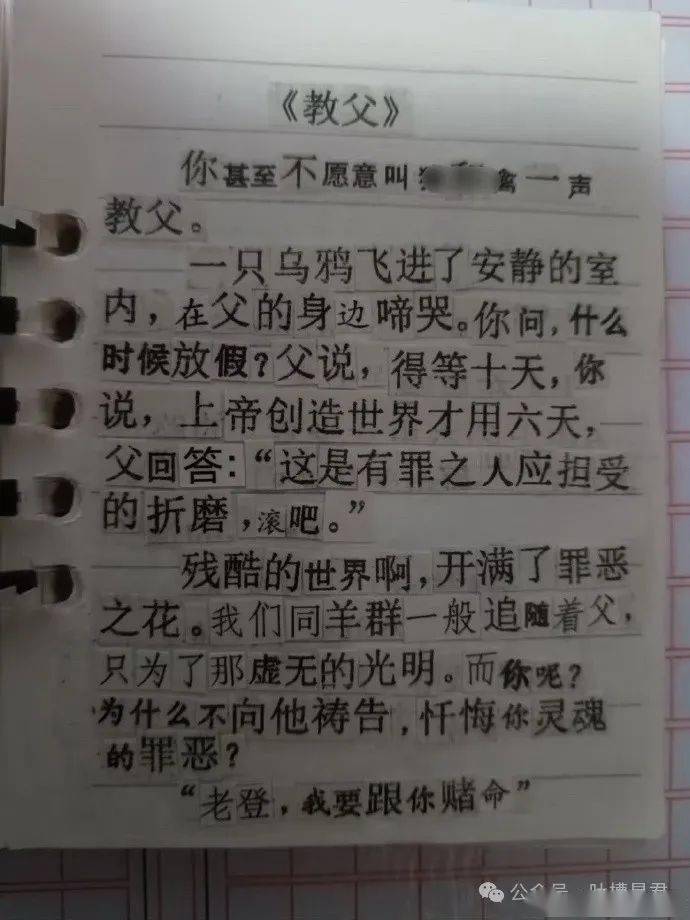 《教父》
你甚至不愿意叫 一声
教父。
一只乌鸦飞进了安静的室
内，在父的身边啼哭。你问，什么
时候放假？父说，得等十天，你
说，上帝创造世界才用六天，
父回答：“这是有罪之人应担受
的折磨，滚吧。”
残酷的世界啊，开满了罪恶
之花。我们同羊群一般追随着父，
只为了那虚无的光明。而你呢？
为什么不向他祷告，忏悔你灵魂
的罪恶？
“老登，我要跟你赌命”
公众号·吐槽星君